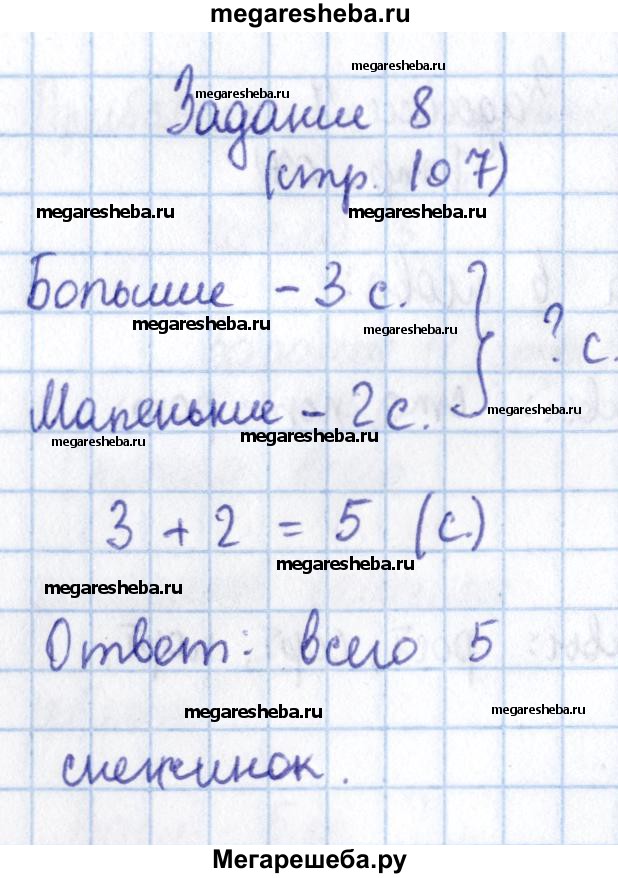 megaresheba.ru
megaresheba.ru
megaresheba.ru
Задание 8
(стр. 107)
megaresheba.ru megaresheba.ru
Большие - 3 с.
megaresheba.ru megaresheba.ru
? с.
Маленькие - 2 с.
megaresheba.ru megaresheba.ru megaresheba.ru
3 + 2 = 5 (с.)
megaresheba.ru megaresheba.ru
Ответ: всего 5
megaresheba.ru megaresheba.ru
снежинок.
Мегарешеба.ру